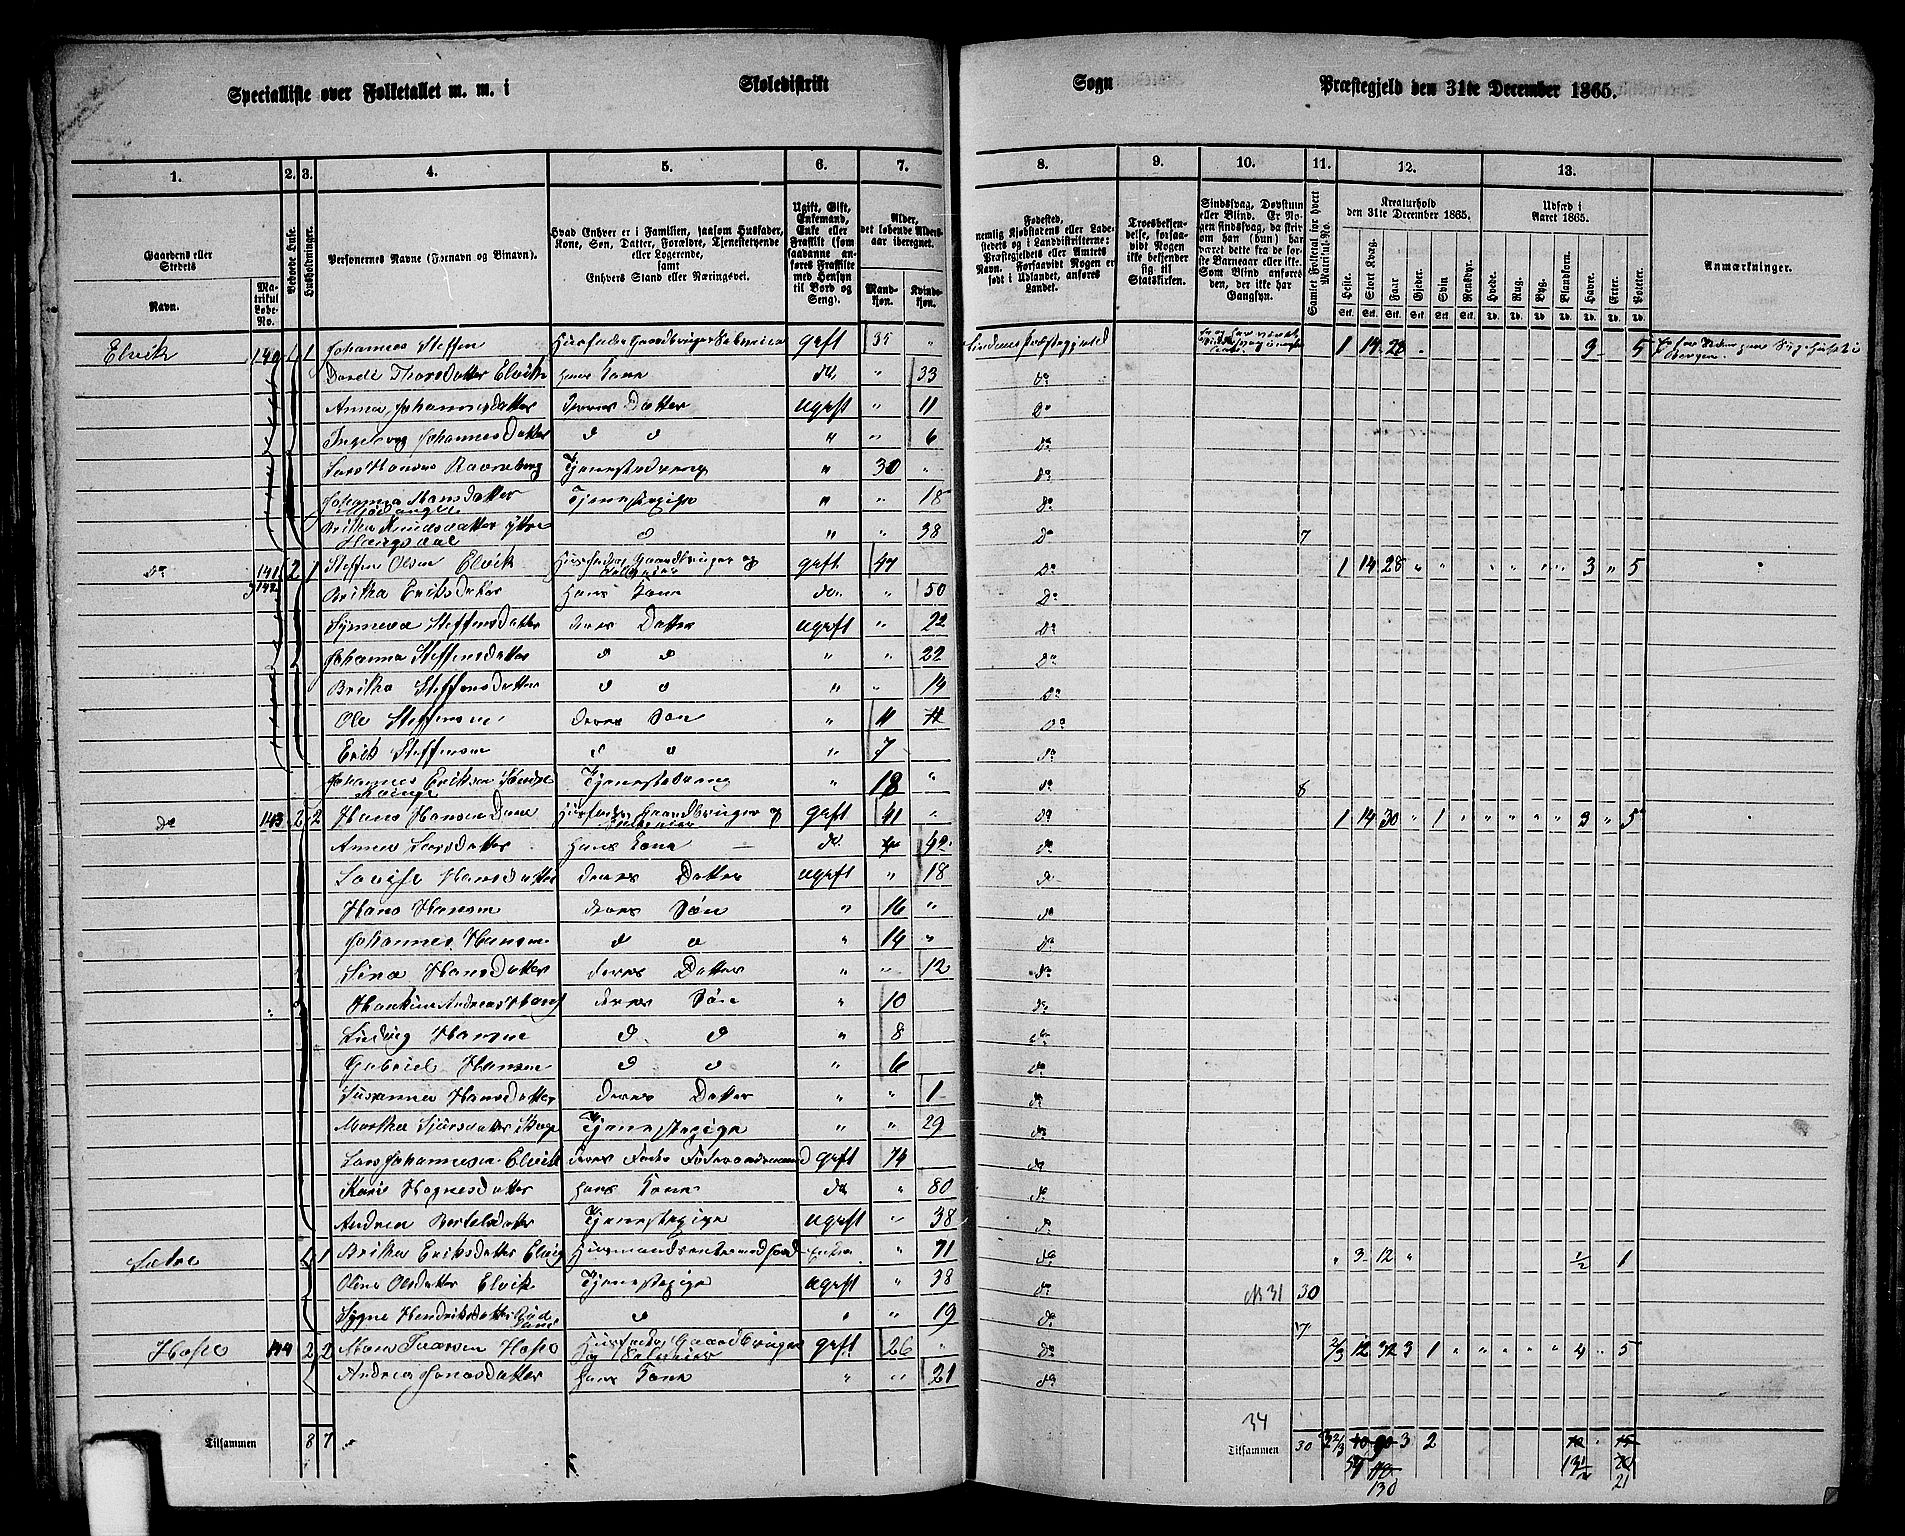 Specialliste over Folketallet m. m. i Skoledistrikt Sogn Præstegjeld den 31te December 1865.
1. 2. 3. 4. 5. 6. 7. 8. 9. 10. 11. 12. 13.
Gaardens eller Stedets Navn. Matrikul Løbe-No. Beboede Huse. Husholdninger. Personernes Navne (Fornavn og Binavn).
Hvad Enhver er i Familien, saasom Husfader, Kone, Søn, Datter, Forældre, Tjenestetyende eller Logerende, samt Enhvers Stand eller Næringsvei.
Ugift, Gift, Enkemand, Enke eller Fraskilt (som saadanne anføres Fraskilte med Hensyn til Bord og Seng).
Alder, det løbende Aldersaar iberegnet. Mandkjøn. Kvindekjøn.
Fødested, nemlig Kjøbstadens eller Ladestedets og i Landdistrikterne: Præstegjeldets eller Amtets Navn. Forsaavidt Nogen er født i Udlandet, anføres Landet.
Troesbekjendelse, forsaavidt Nogen ikke bekjender sig til Statskirken.
Sindssvag, Døvstum eller Blind. Er Nogen sindssvag, da skrives om han (hun) har været dette fra de første Barneaar eller ikke. Som Blind anføres den, der ikke har Gangsyn.
Samlet Folketal for hvert Matrikul-No.
Kreaturhold den 31te December 1865. Heste. Stort Kvæg. Faar. Gjeder. Svin. Rensdyr.
Udsæd i Aaret 1865. Hvede. Rug. Byg. Blandkorn. Havre. Erter. Poteter.
Anmærkninger.
Elvik 140 1 1 Johannes Steffen gift 35 1 14 28 3 5
Dordi Thorsdatter Elvik hans Kone do " 33 do
Anna Johannesdatter deres Datter ugift " 11 Do
Ingeborg Johannesdatter d d " " 6 Do
Lars Hansen Ravneberg Tjenestedreng " 30 " Do
Johanna Monsdatter Tjenestepige " " 18 Do
Britha Knudsdatter Ytre Haugsdal d " " 38 Do 7
Do 141 2 1 Steffen Olsen Elvik Husfader Gaardbruger og Selveier gift 47 Do 1 14 28 " " 3 " 5
142 Britha Eriksdatter hans Kone do " 50 Do
Synneva Steffensdatter deres Datter ugift " 22 Do
Johanna Steffensdatter d d " " 22 Do
Britha Steffensdatter d d " " 14 Do
Ole Steffensen deres Søn " 11 11 Do
Erik Steffensen d d " 7 do
Johannes Eriksen Tjenestedreng " 18 " do 8
do 143 2 2 Hans Hansen Dane Husfader Gaardbruger og Selveier gift 41 " do 1 14 30 " 1 " " " " " 3 " 5
Anna Larsdatter hans Kone do 42 do
Lovise Hansdatter deres Datter ugift " 18 do
Hans Hansen deres Søn " 16 " do
Johannes Hansen d d " 14 " do
Lina Hansdatter deres Datter " " 12 do
Andreas deres Søn " 10 do
Ludvig Hansen d d " 8 do
Gabriel Hansen d d " 6 do
Susanna Hansdatter deres Datter " " 1 do
Martha Sjursdatter Tjenestepige " " 29 do
Lars Johannesen Elvik deres Fader Føderaadsmand gift 74 do
Kari Hognesdatter hans Kone do " 80 do
Andrea Bertelsdatter Tjenestepige ugift " 38 do
Sætre 1 1 Britha Eriksdatter Elvig Enke " 71 do " 3 12 " ½ 1
Oline Olsdatter Elvik Tjenestepige ugift " 38 do № 31 30
Sygne Hendriksdatter d " " 19 do
Hope 144 2 2 Mons Iversen Hope Husfader Gaardbruger og Selveier gift 26 " do 7 2/3 12 32 3 1 " " " " " 4 " 5
Andrea Jonasdatter hans Kone " " 21 do
34
Tilsammen 8 7 Tilsammen 30 3 2
130 13½ 21